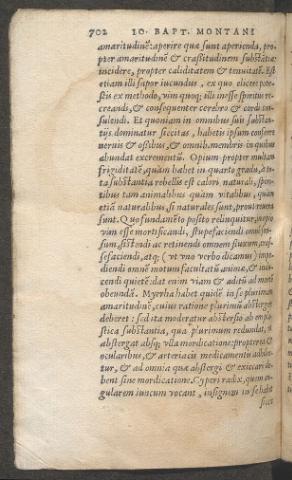 702 IO. BAPT. MONTANI
amaritudinẽ: aperire quæ sunt aperienda, pro,
pter amaritudinẽ & crassitudinem substãtiæ
incidere, propter caliditatem & tenuitatẽ. Est
etiam illi sapor iucundus, ex quo elicere pote-
stis ex methodo, vim quoq; illi inesse spiritus re-
creandi, & consequenter cerebro & cordi con-
sulendi. Et quoniam in omnibus suis substan-
tijs dominatur siccitas, habetis ipsum conferre
neruis & ossibus, & omnib. membris in quibus
abundat excrementũ. Opium propter multam
frigiditatẽ, quàm habet in quarto gradu, & to-
ta substãntia rebellis est calori naturali, spiri-
tibus tam animalibus quàm vitalibus, quàm
etiã naturalibus, si naturales sunt, prout reuera
sunt. Quo fundamẽto posito relinquitur,
vim esse mortificandi, stupefaciendi omnẽ sen-
sum, sistendi ac retinendi omnem fluxum,
sefaciendi, atq; (vt vno verbo dicamus) impe-
diendi omnẽ motum facultatũ animæ, & indu-
cendi quietẽ: dat enim viam & aditũ ad mortẽ
obeundã. Myrrha habet quidẽ in se plurimam
amaritudinẽ, cuius ratione plurimũ abstergere
deberet: sed ita moderatur abstersio ab empla-
stica substantia, qua plurimum redundat, vt
abstergat absq; vlla mordicatione: propterea &
ocularibus, & arteriacis medicamentis
tur, & ad omnia quæ abstergi & exiccari de-
bent sine mordicatione. Cyperi radix, quem an-
gularem iuncum vocant, insignem in se habet
sicci-